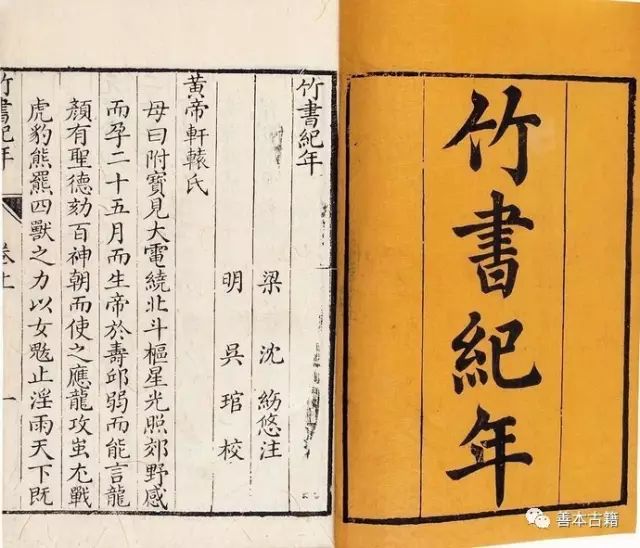 竹書紀年
竹書紀年
梁 沈 紛悠注
明 吳 琯 校
黃帝軒轅氏
母曰附寶見大電繞北斗樞星光照郊野感
而孕二十五月而生帝於壽邱弱而能言龍
顏有聖德劾百神朝而使之應龍攻蚩尤戰
虎豹熊羆四獸之力以女魃止淫雨天下既
竹書紀年 卷上 一
善本古籍